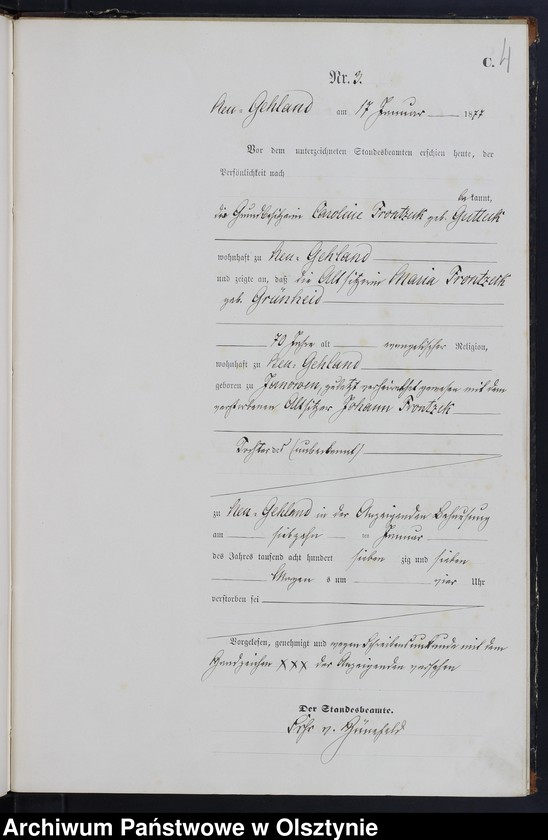 C. 4
Nr. 3.
Neu-Gehland am 17 Januar 1877
Vor dem unterzeichneten Standesbeamten erschien heute, der
Persönlichkeit nach
be kannt,
die Grundbesitzerin Caroline Trontzek geb. Gutteck
wohnhaft zu Neu-Gehland
und zeigte an, daß die Altsitzerin Maria Trontzek
geb. Grünheid
70 Jahre alt evangelischer Religion,
wohnhaft zu Neu-Gehland
geboren zu Janowom, zuletzt verheirathet gewesen mit dem
verstorbenen Altsitzer Johann Trontzek
Tochter des (unbekannt)
zu Neu-Gehland in der Anzeigenden Behausung
am siebzehn ten Januar
des Jahres tausend acht hundert sieben zig und sieben
Morgen s um vier Uhr
verstorben sei
Vorgelesen, genehmigt und wegen Schreibensunkunde mit dem
Handzeichen XXX der Anzeigenden versehen
Der Standesbeamte.
v.
Archiwum Państwowe w Olsztynie